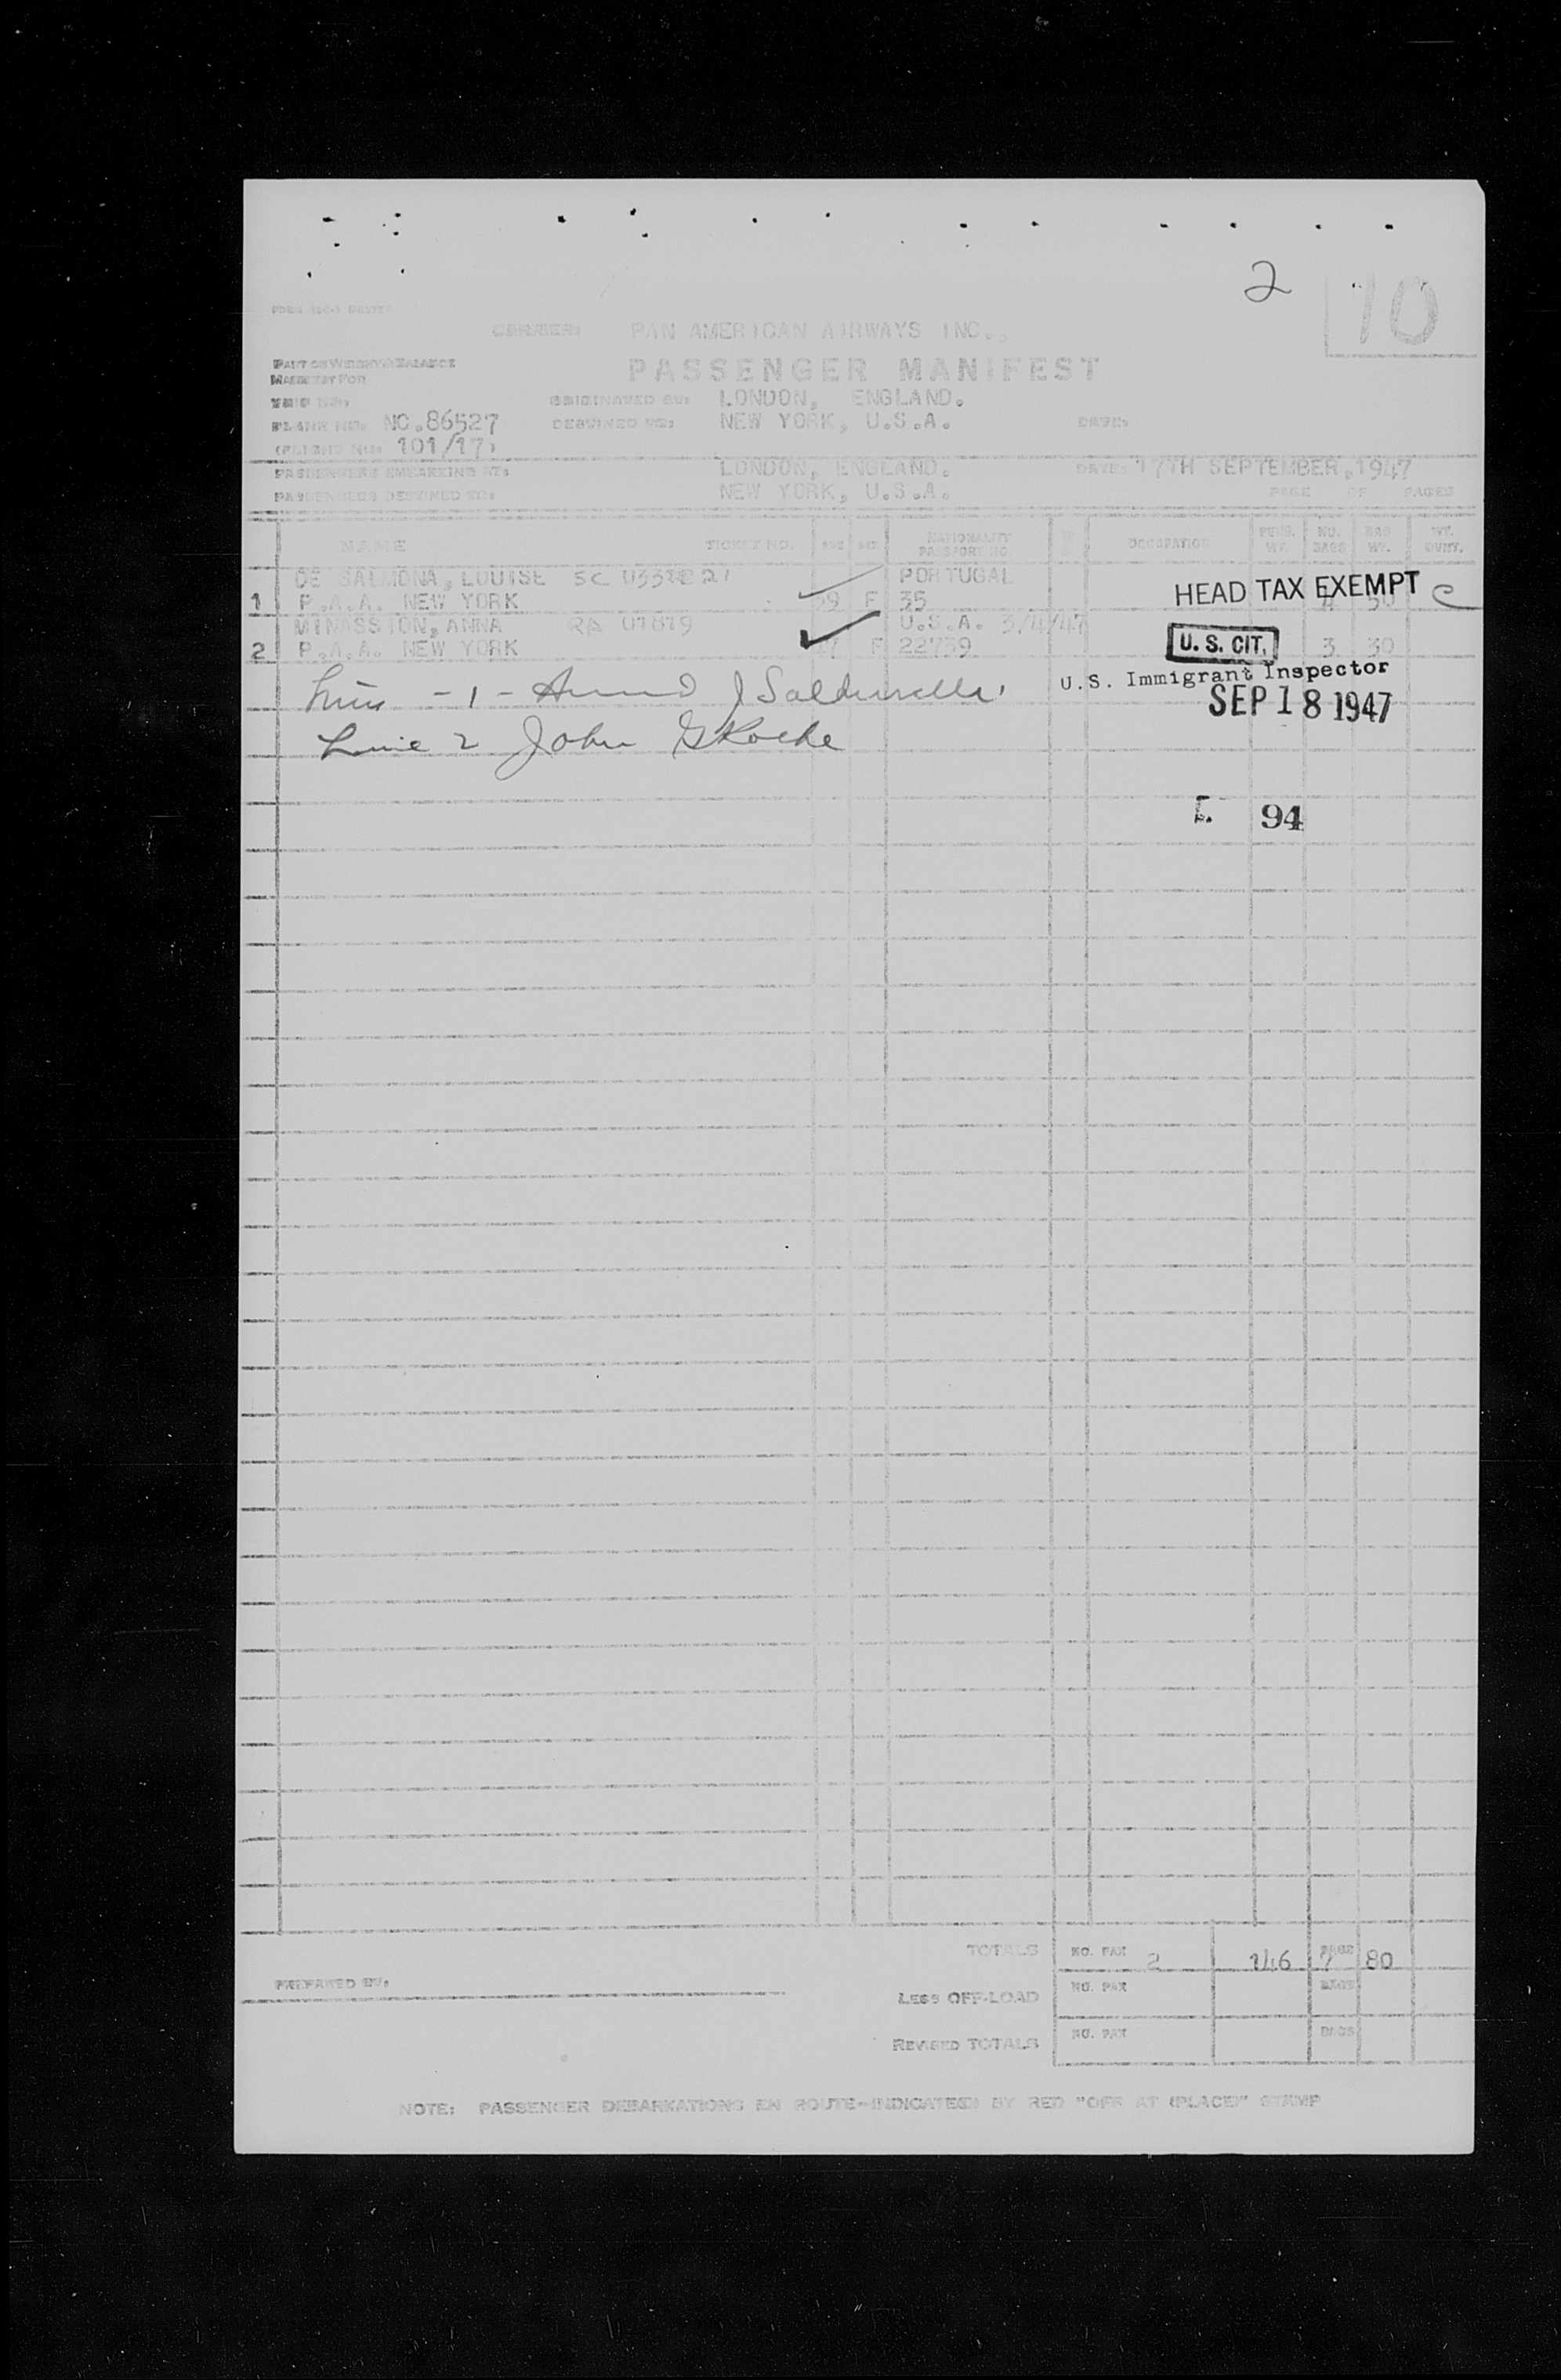 2
10
CARRIER: PAN AMERICAN AIRWAYS INC.,
PART OF WEIGHT & BALANCE
MANIFEST FOR
PASSENGER MANIFEST
TRIP NO:
ORIGINATED AT: LONDON, ENGLAND.
PLANE NO: NC.86527
DESTINED TO: NEW YORK, U.S.A.
DATE:
(FLIGHT NO: 101/17)
PASSENGERS EMBARKING AT: LONDON, ENGLAND. DATE: 17TH SEPTEMBER,1947
PASSENGERS DESTINED TO: NEW YORK, U.S.A. PAGE OF PAGES
NAME TICKET NO. AGE SEX NATIONALITY PASSPORT NO OCCUPATION NO. BAGS BAG WT.
DE SALMONA, LOUISE SC PORTUGAL
1 P.A.A. NEW YORK F 35 HEAD TAX EXEMPT
MINASSION, ANNA RA 01819 U.S.A. 3/4/47
2 P.A.A. NEW YORK F 22739 U. S. CIT. 3 30
U.S. Immigrant Inspector
SEP 18 1947
Line 2 John G Roche
94
TOTALS NO. PAX 2 146 BAGS 7 80
PREPARED BY:
LESS OFF-LOAD NO. PAX BAGS
REVISED TOTALS NO. PAX BAGS
NOTE: PASSENGER DEBARKATIONS EN ROUTE-INDICATED BY RED "OFF AT (PLACE)" STAMP